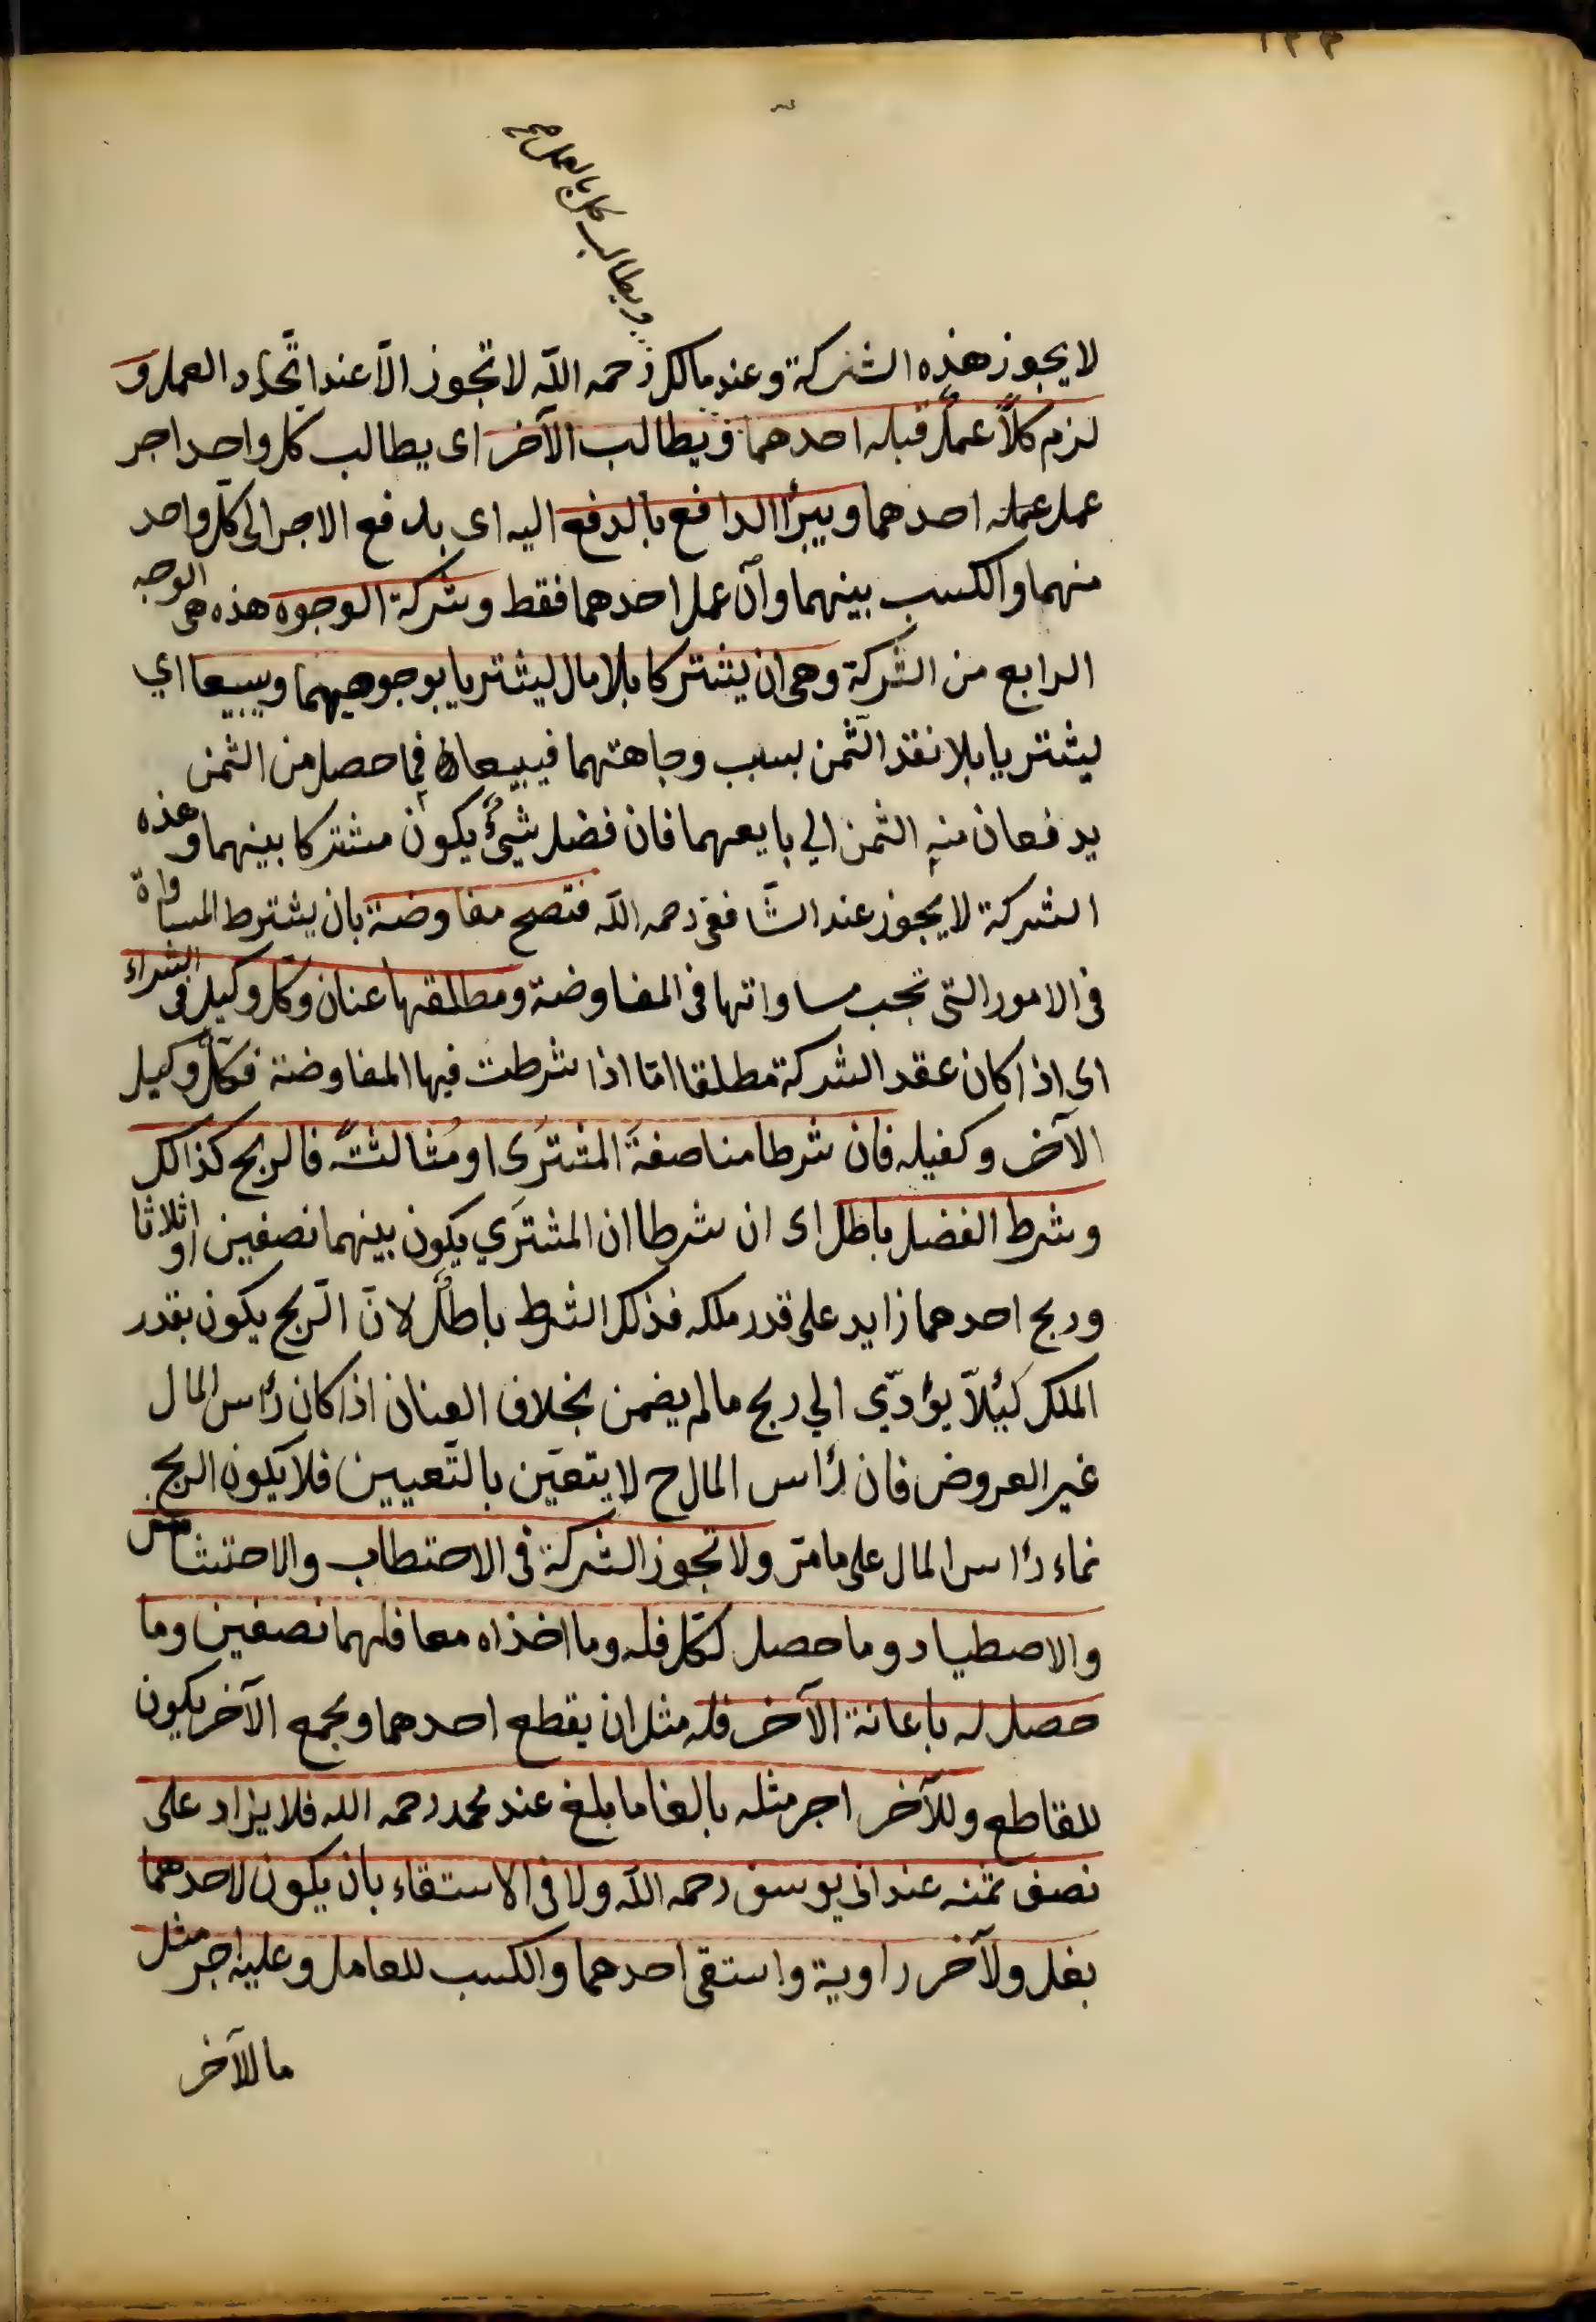 ويطالب كل بالعمل صح
لا يجوز هذه الشركة وعند مالك رحمه اللّه لا تجوز الّا عند اتّحاد العمل و
لزم كلاًّ عملٌ قبله احدهما ويطالب الآخر اى يطالب كل واحد اجر
عمل عمله احدهما ويبرأ الدافع بالدفع اليه اى بدفع الاجر الى كلّ واحد
منهما والكسب بينهما وان عمل احدهما فقط وشركة الوجوه هذه هى الوجه
الرابع من الشركة وهى ان يشتركا بلا مال ليشتريا بوجوههما ويبيعا اي
ليشتريا بلا نقد الثمن بسبب وجاهتهما فيبيعان فما حصل من الثمن
يدفعان منه الثمن الي بايعهما فان فضل شيئٌ يكون مشتركا بينهما وهذه
الشركة لا يجوز عند الشّافعى رحمه اللّه فتصح مفاوضة بان يشترط المساواة
فى الامور التى تجب مساواتها فى المفاوضة ومطلقها عنان وكل وكيل فى الشراء
اى اذا كان عقد الشركة مطلقا امّا اذا شرطت فيها المفاوضة فكلٌّ وكيل
الآخر وكفيله فان شرطا مناصفةَ المشترَى او مُثالثتَه فالربح كذالك
وشرط الفضل باطل اى ان شرطا ان المشترَي يكون بينهما نصفين او اثلاثا
وربح احدهما زايد على قدر ملكه فذلك الشرط باطلٌ لانّ الّربح يكون بقدر
الملك كيئلاّ يؤدّي الي ربح مالم يضمن بخلاف العنان اذا كان رأس المال
غير العروض فان رأس المال ح لا يتعيّن بالتّعيين فلا يكون الربح
نماء رأس المال على ما مرّ ولا تجوز الشركة فى الاحتطاب والاحتشاش
والاصطياد وما حصل لكلّ فله وما اخذاه معا فلهما نصفين وما
حصل له باعانة الآخر فله مثل ان يقطع احدهما ويجمع الآخر يكون
للقاطع وللآخر اجر مثله بالغا ما بلغ عند محمد رحمه الله فلا يزاد على
نصف ثمنه عند ابى يوسف رحمه اللّه ولا فى الاستقاء بان يكون لاحدهما
بغل ولآخر راوية واستقى احدهما والكسب للعامل وعليه اجر مثل
ما للآخر